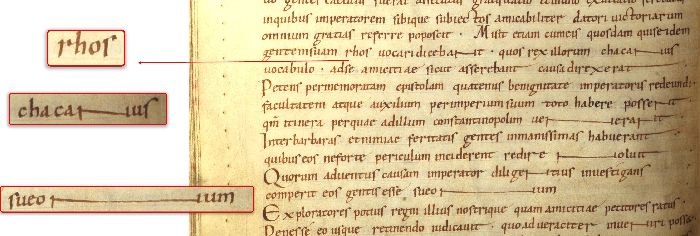 rhos
chacanus
sueonum
inquibus imperatorem sibique subiectos amicabiliter datori victoriarum
omnium gratias referre poposcit · Misit etiam cumeis quosdam quiseidem
gentemsuam rhos vocaridicebant · quos rex illorum chacanus
vocabulo · adse amicitiae sicut asserebant causa direxerat
Petens permemoratam epistolam quatenus benignitate imperatoris redeundi
facultatem atque auxilium perimperium suum toto habere possent
qm̄ itinera perquae adillum constantinopolim venerant
Interbarbaras etnimiae feritatis gentes inmanissimas habuerant
quibus eos neforte periculum inciderent redire noluit
Quorum adventus causam imperator diligentius investigans
comperit eos gentis esse sueonum
Exploratores potius regni illius nostrique quam amicitiae petitores ratus
Penesse eo usque retinendo iudicavit · quoadveraciter inveniri posset